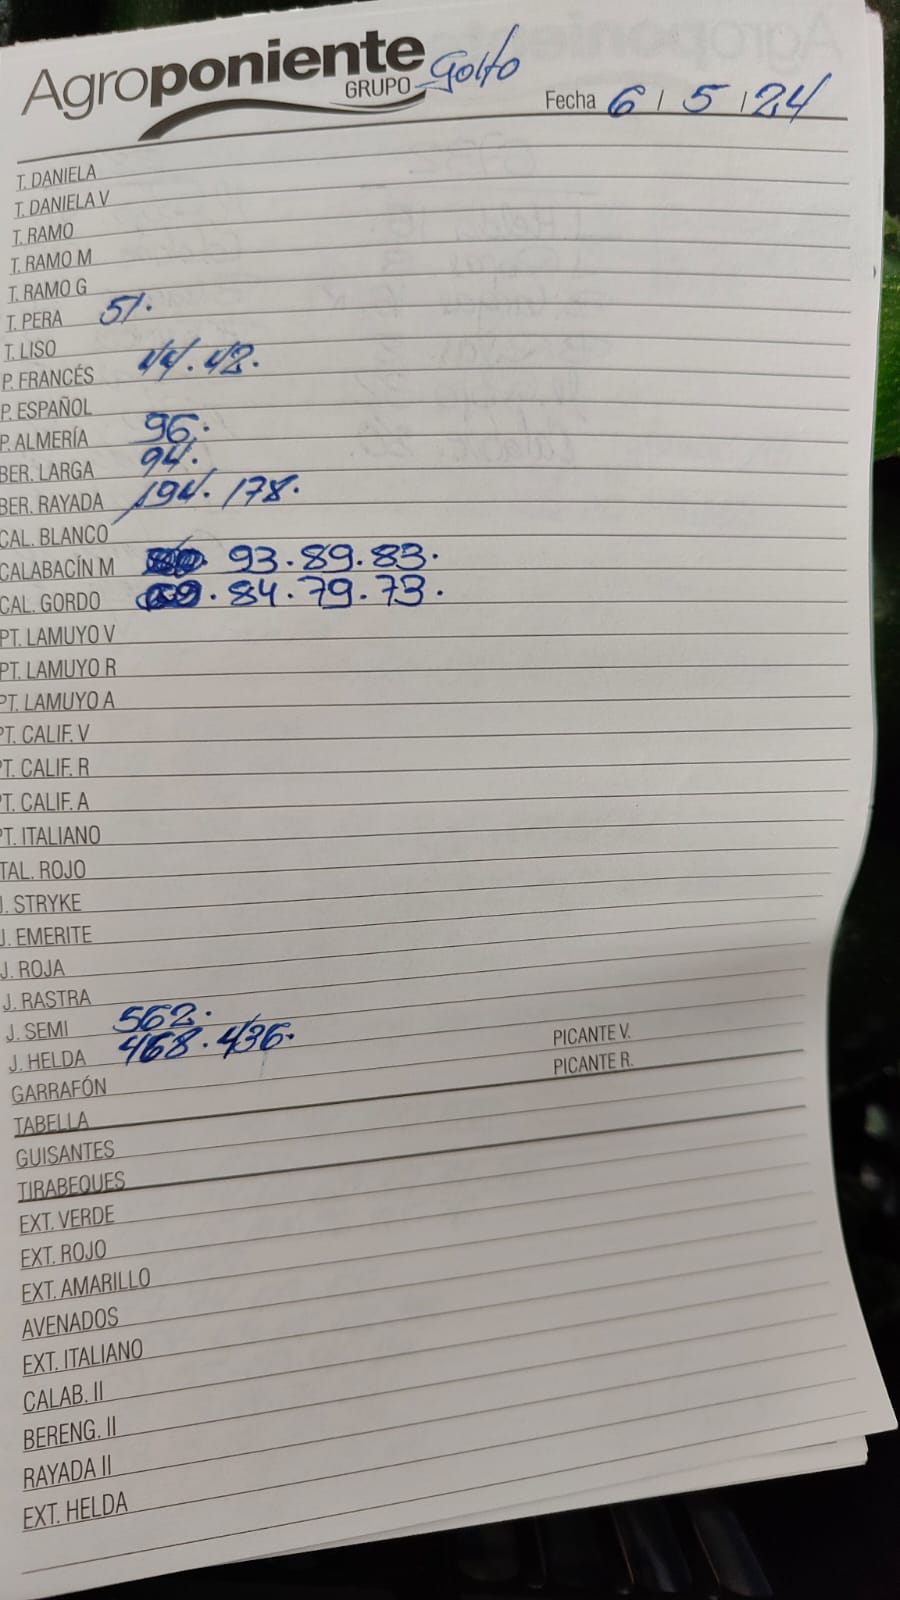 Agroponiente
GRUPO
Golfo
Fecha 6 / 5 / 24
T. DANIELA
T. DANIELA V
T. RAMO
T. RAMO M
T. RAMO G
T. PERA 51.
T. LISO
P. FRANCÉS 44. 42.
P. ESPAÑOL
P. ALMERÍA 96.
BER. LARGA 94.
BER. RAYADA 194. 178.
CAL. BLANCO
CALABACÍN M 93. 89. 83.
CAL. GORDO . 84. 79. 73.
PT. LAMUYO V
PT. LAMUYO R
PT. LAMUYO A
PT. CALIF. V
PT. CALIF. R
PT. CALIF. A
PT. ITALIANO
TAL. ROJO
J. STRYKE
J. EMERITE
J. ROJA
J. RASTRA
J. SEMI 562.
J. HELDA 468. 436. PICANTE V.
GARRAFÓN PICANTE R.
TABELLA
GUISANTES
TIRABEQUES
EXT. VERDE
EXT. ROJO
EXT. AMARILLO
AVENADOS
EXT. ITALIANO
CALAB. II
BERENG. II
RAYADA II
EXT. HELDA